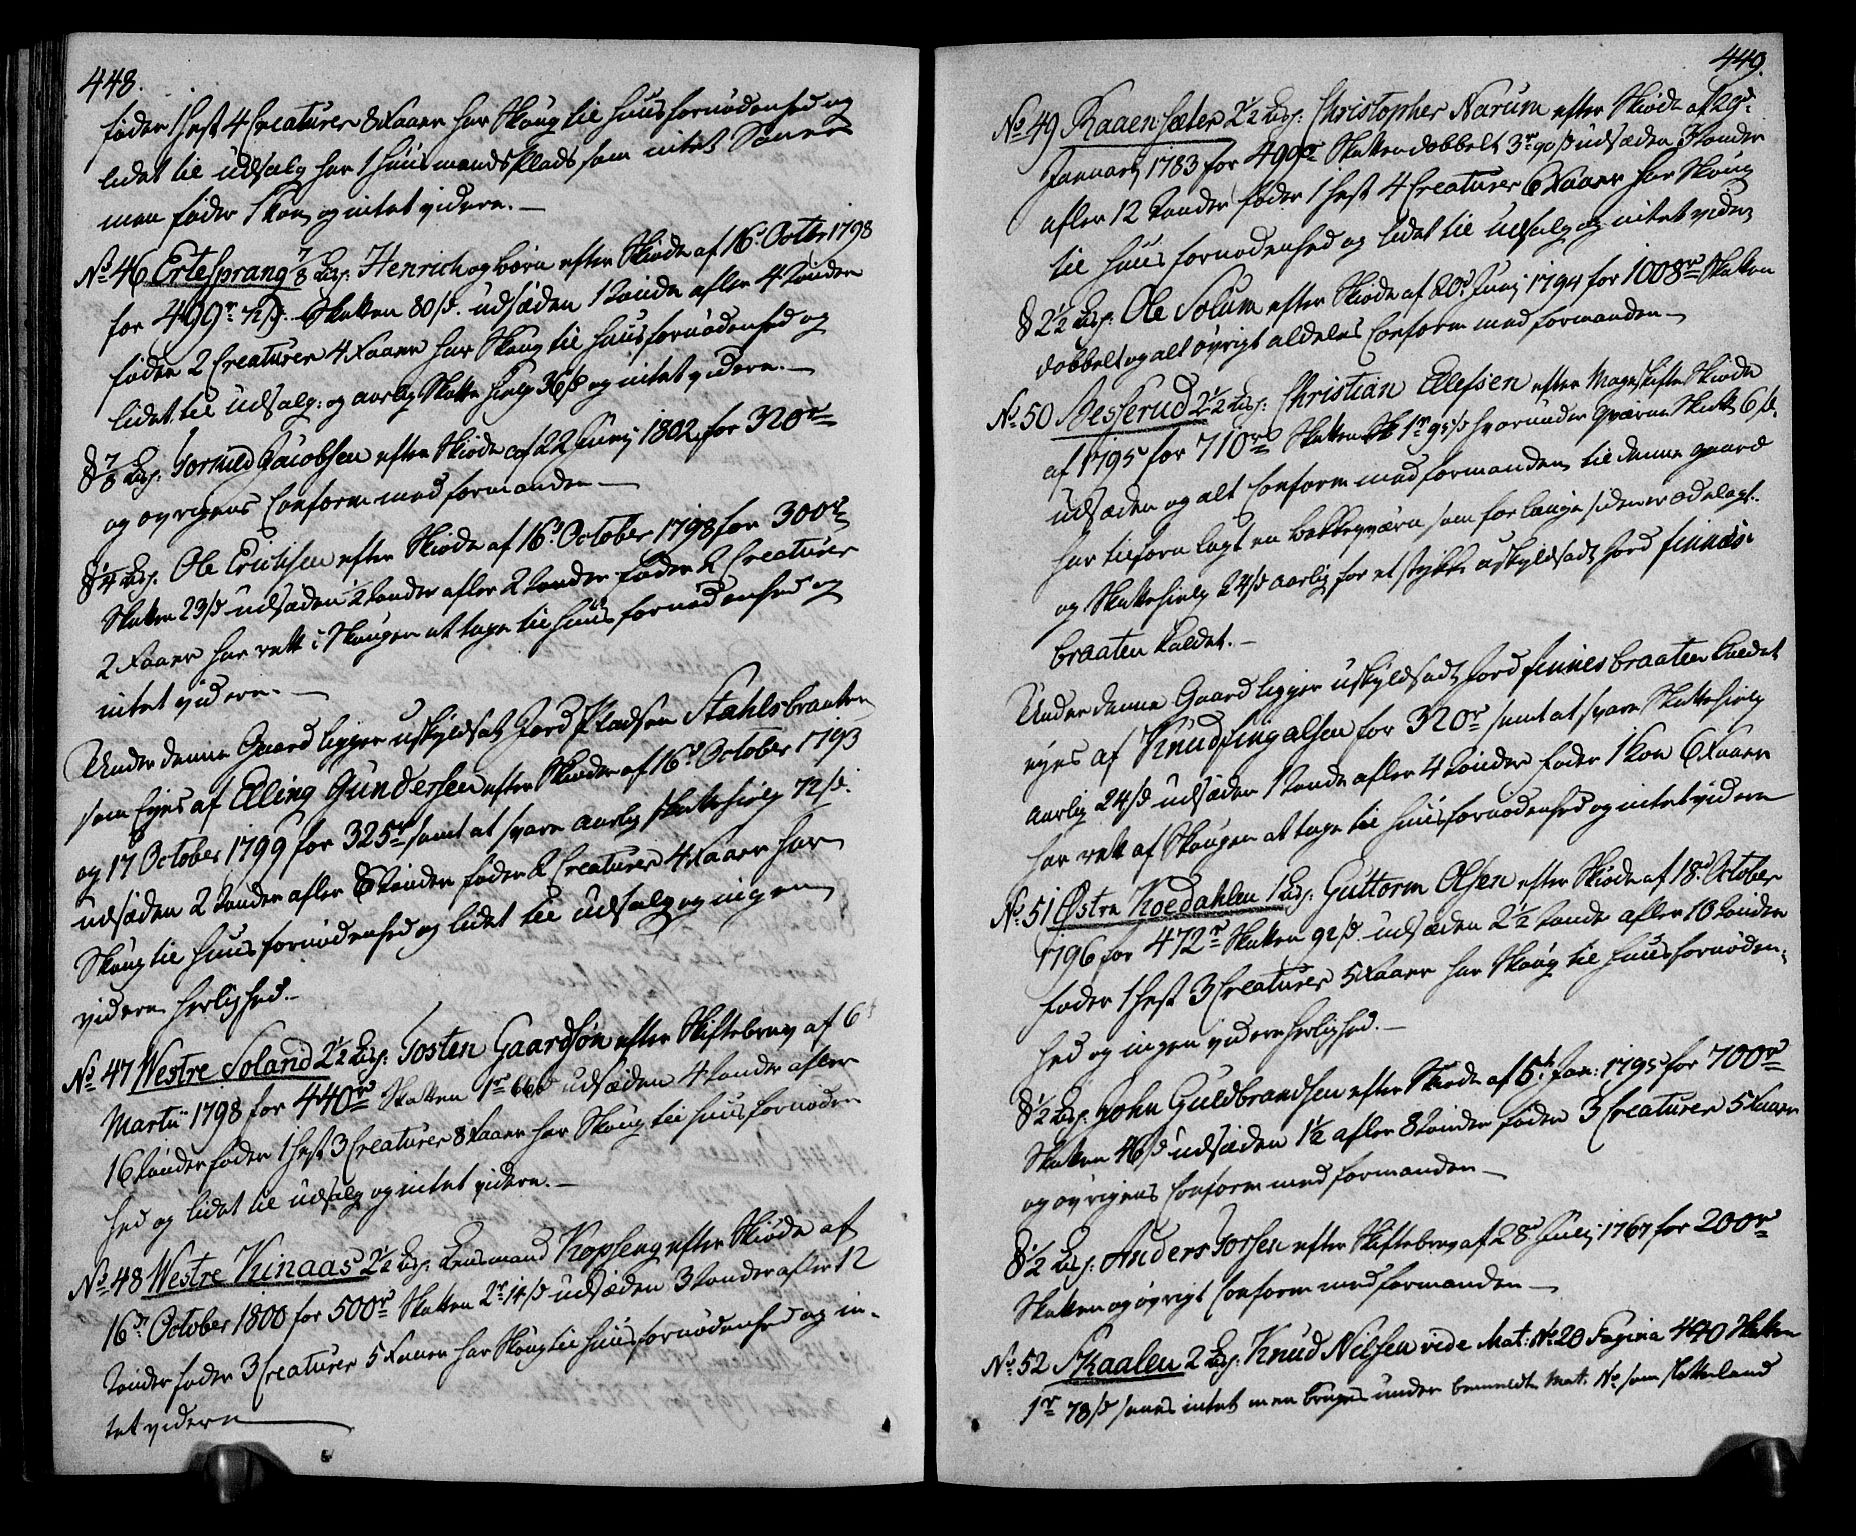 448.
føder 1 Hest 4 Creaturer 8 Faaer har Skoug til Huusfornødenhed og
lidet til udsalg har 1 Huusmandsplads som intet Saaer
men føder 1 Koe, og intet videre. —
No 46 Ertesprang 7/8 Lisp: Henrich og børn efter Skiøde af 16d Octbr 1798
for 499r Skatten 80 s. udsæden 1 Tønde afler 4 Tønder
føder 2 Creaturer 4 Faaer har Skoug til Huusfornødenhed og
lidet til udsalg: og aarlig Skatte hielp 36 s og intet videre. —
§ 7/8 Lisp. Torkild Jacobsen efter Skiøde af 22 Junij 1802 for 320r
og øvrigens Conform med formanden —
§ 1/4 Lisp. Ole Erichsen efter Skiøde af 16d October 1798 for 300r
Skatten 23 s udsæden 1/2 Tønder afler 2 Tønder føder 2 Creaturer
2 Faaer har rett i Skougen at tage til Huusfornødenhed og
intet videre. —
Under denne Gaard ligger uskyldsatz Jord Pladsen Stahlsbraaten
som Eyes af Elling Gundersen efter Skiøder af 16d October 1793
og 17 October 1799 for 325r samt at svare aarlig Skattehielp 72 s.
udsæden 2 Tønder afler 8 Tønder føder 2 Creaturer 4 Faaer har
Skoug til Huusfornødenhed og lidet til udsalg og ingen
videre herlighed. —
No 47 Westre Soland 2 1/2 Lisp: Tosten Gaardsøn efter Skiftebrev af 6t
Martii 1798 for 440r Skatten 1r 66 s udsæden 4 Tønder afler
16 Tønder føder 1 Hest 3 Creaturer 8 Faaer har Skoug til Huusfornøden
hed og lidet til udsalg og intet videre. —
No 48 Westre Kinaas 2 1/2 Lisp: Lensmand Kopseng efter Skiøde af
16d October 1800 for 500r Skatten 2r 14 s udsæden 3 Tønder afler 12
Tønder føder 3 Creaturer 5 Faaer har Skoug til Huusfornødenhed og in-
tet videre
449.
No 49 Kaaen Sæter 2 1/2 Lisp: Christopher Narum efter Skiøde af 29d
Januarij 1783 for 499r Skatten dobbelt 3r 90 s udsæden 3 Tønder
afler 12 Tønder føder 1 Hest 4 Creaturer 6 Faaer har Skoug
til Huusfornødenhed og lidet til udsalg og intet videre
§ 2 1/2 Lisp: Ole Solum efter Skiøde af 20d Junij 1794 for 1008r Skatten
dobbelt og alt øvrigt aldeles Conform med formanden —
No 50 Nesserud 2 1/2 Lisp: Christian Ellefsen efter Mageskifte Skiøde
af 1795 for 710r Skatten 1r 95 s hvorunder qværne Skatt 6 s.
udsæden og alt Conform med formanden, til denne gaard
har tilforn lagt en bekkeqværn som for længe siden er ødelagt.
og Skattehielp 24 s aarlig for et stykke uskyldsadt Jord finnes-
braaten kaldet. —
Under denne Gaard ligger uskyldsadt Jord finnesbraaten kaldet
eyes af Knud Fingalsen for 320r samt at svare Skattehielp
aarlig 24 s udsæden 1 Tønde afler 4 Tønder føder 1 Koe 6 Faaer
har rett af Skougen at tage til Huusfornødenhed og intet videre
No 51 Østre Koedahlen 1 Lisp: Guttorm Olsen efter Skiøde af 18d October
1796 for 472r Skatten 92 s udsæden 2 1/2 Tønde afler 10 Tønder
føder 1 Hest 3 Creaturer 5 Faaer har Skoug til Huusfornøden-
hed og ingen videre herlighed. —
§ 1/2 Lisp. John Guldbrandsen efter Skiøde af 5t Jan: 1795 for 700r
Skatten 46 s udsæden 1 1/2 afler 8 Tønder føder 3 Creaturer 5 Faaer
og øvrigens Conform med formanden —
§ 1/2 Lisp. Anders Torsen efter Skiftebrev af 28d Julij 1767 for 200r
Skatten og øvrigt Conform med formanden —
No 52 Skaalen 2 Lisp: Knud Nilsen vide Mat: No 20 Pagina 440 Skatten
1r 78 s saaes intet men bruges under bemeldte Mat. No som Slotteland